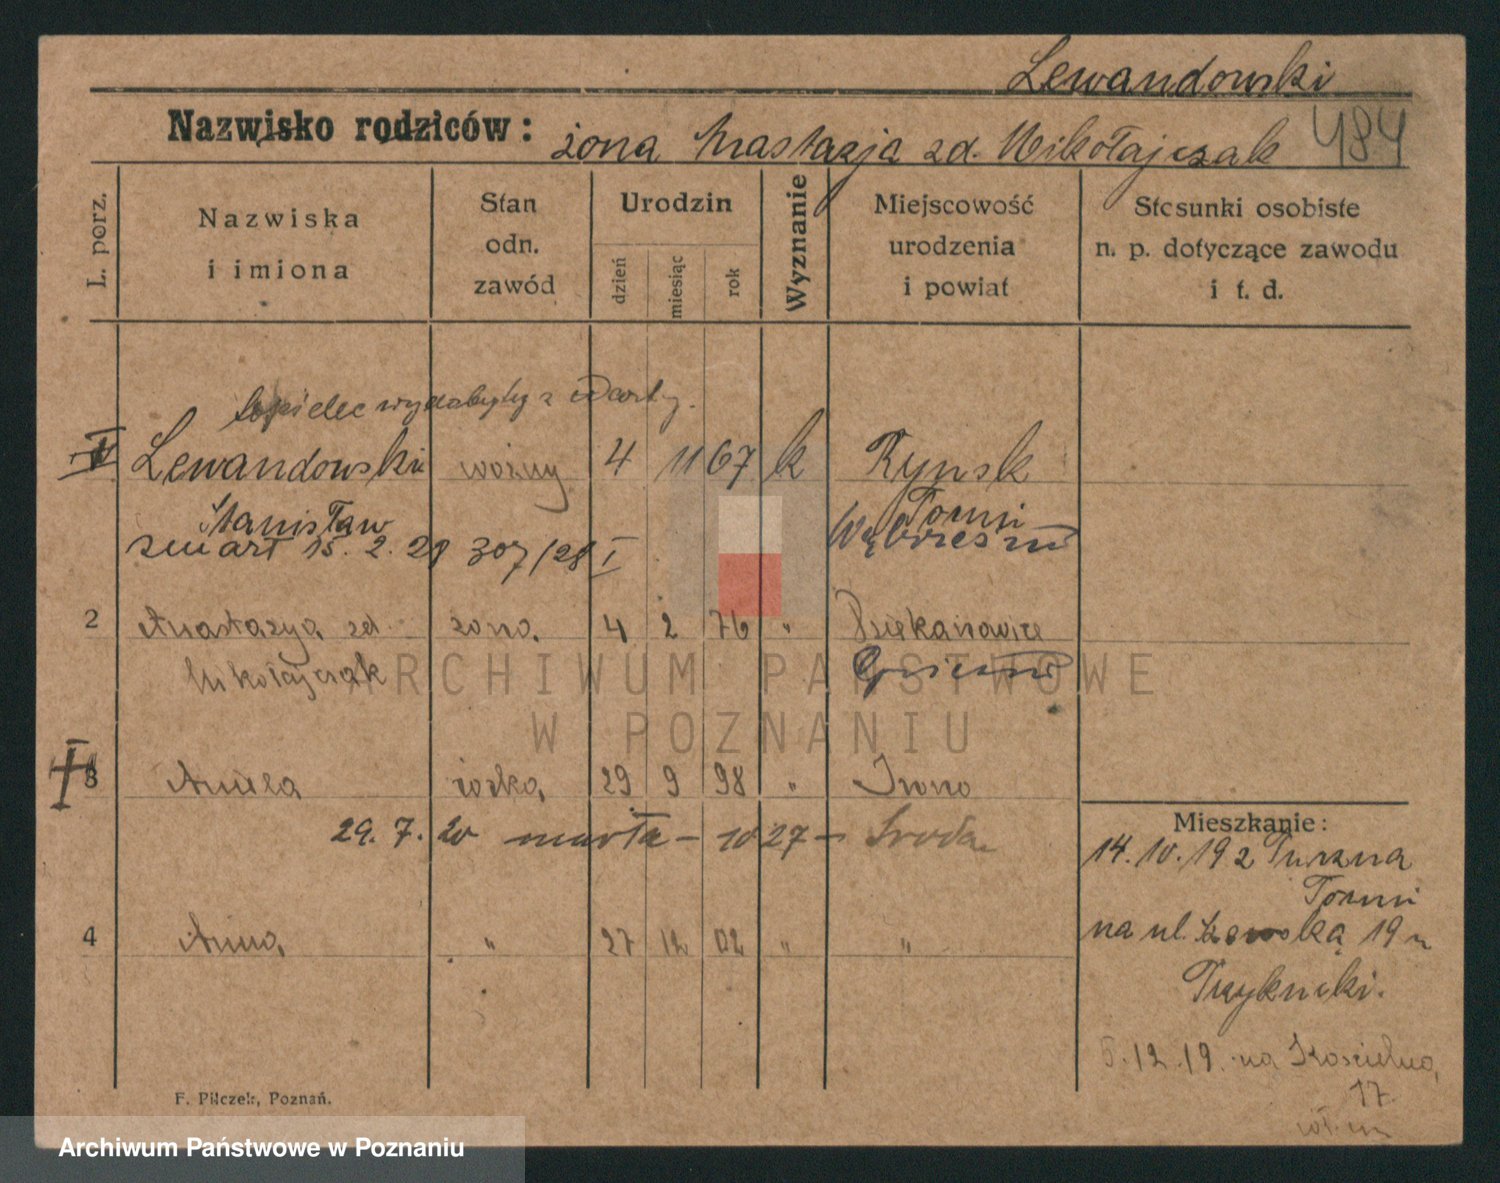 Lewandowski
Nazwisko rodziców: żona Anastazja zd. Mikołajczak 484
L. porz.
Nazwiska i imiona
Stan odn. zawód
Urodzin
dzień
miesiąc
rok
Wyznanie
Miejscowość urodzenia i powiat
Stosunki osobiste n. p. dotyczące zawodu i t. d.
topielec wydobyty z Warty.
Lewandowski woźny 4 11 67 k Rynsk
Stanisław Toruń
zmarł 15. 2. 28 307/28 I Wąbrzeźno
2 Anastazya zd żona 4 2 76 " Dziekanowice
Mikołajczak Gniezno
3 Aniela córka 29 9 98 "
29. 7. 20 umarła - 1027 - Środa
4 Anna " 27 12 02 " "
Mieszkanie:
14. 10. 19 z
Toruń
na ul. 19 u
5.12.19. na Kościelną
17.
F. Pilczek, Poznań.
ARCHIWUM PAŃSTWOWE
W POZNANIU
Archiwum Państwowe w Poznaniu